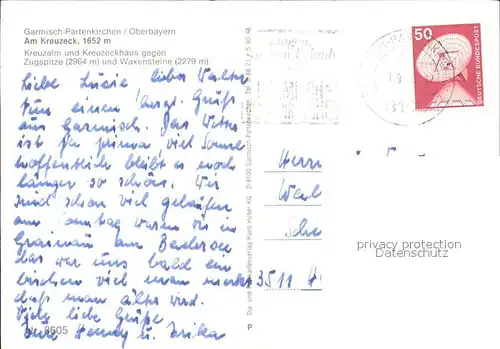 Garmisch-Partenkirchen / Oberbayern
Am Kreuzeck, 1652 m
Kreuzalm und Kreuzeckhaus gegen
Zugspitze (2964 m) und Waxensteine (2279 m)
Liebe Lucie lieber Walter
Nun einen Gruß
aus Garmisch. Das Wetter
ist ja prima, viel Sonne
hoffentlich bleibt es noch
länger so schön. Wir
sind schon viel gelaufen
am Sonntag waren wir in
Grainau am Badersee
das war uns bald ein
bischen viel man merkt
daß man älter wird.
Viele liebe Grüße
Eure Henny u. Erika
Nr. 8605
Kartenverlag Hans Huber KG D-8100 Garmisch-Partenkirchen
P
50
DEUTSCHE BUNDESPOST
Herrn
3511 H
privacy protection
Datenschutz